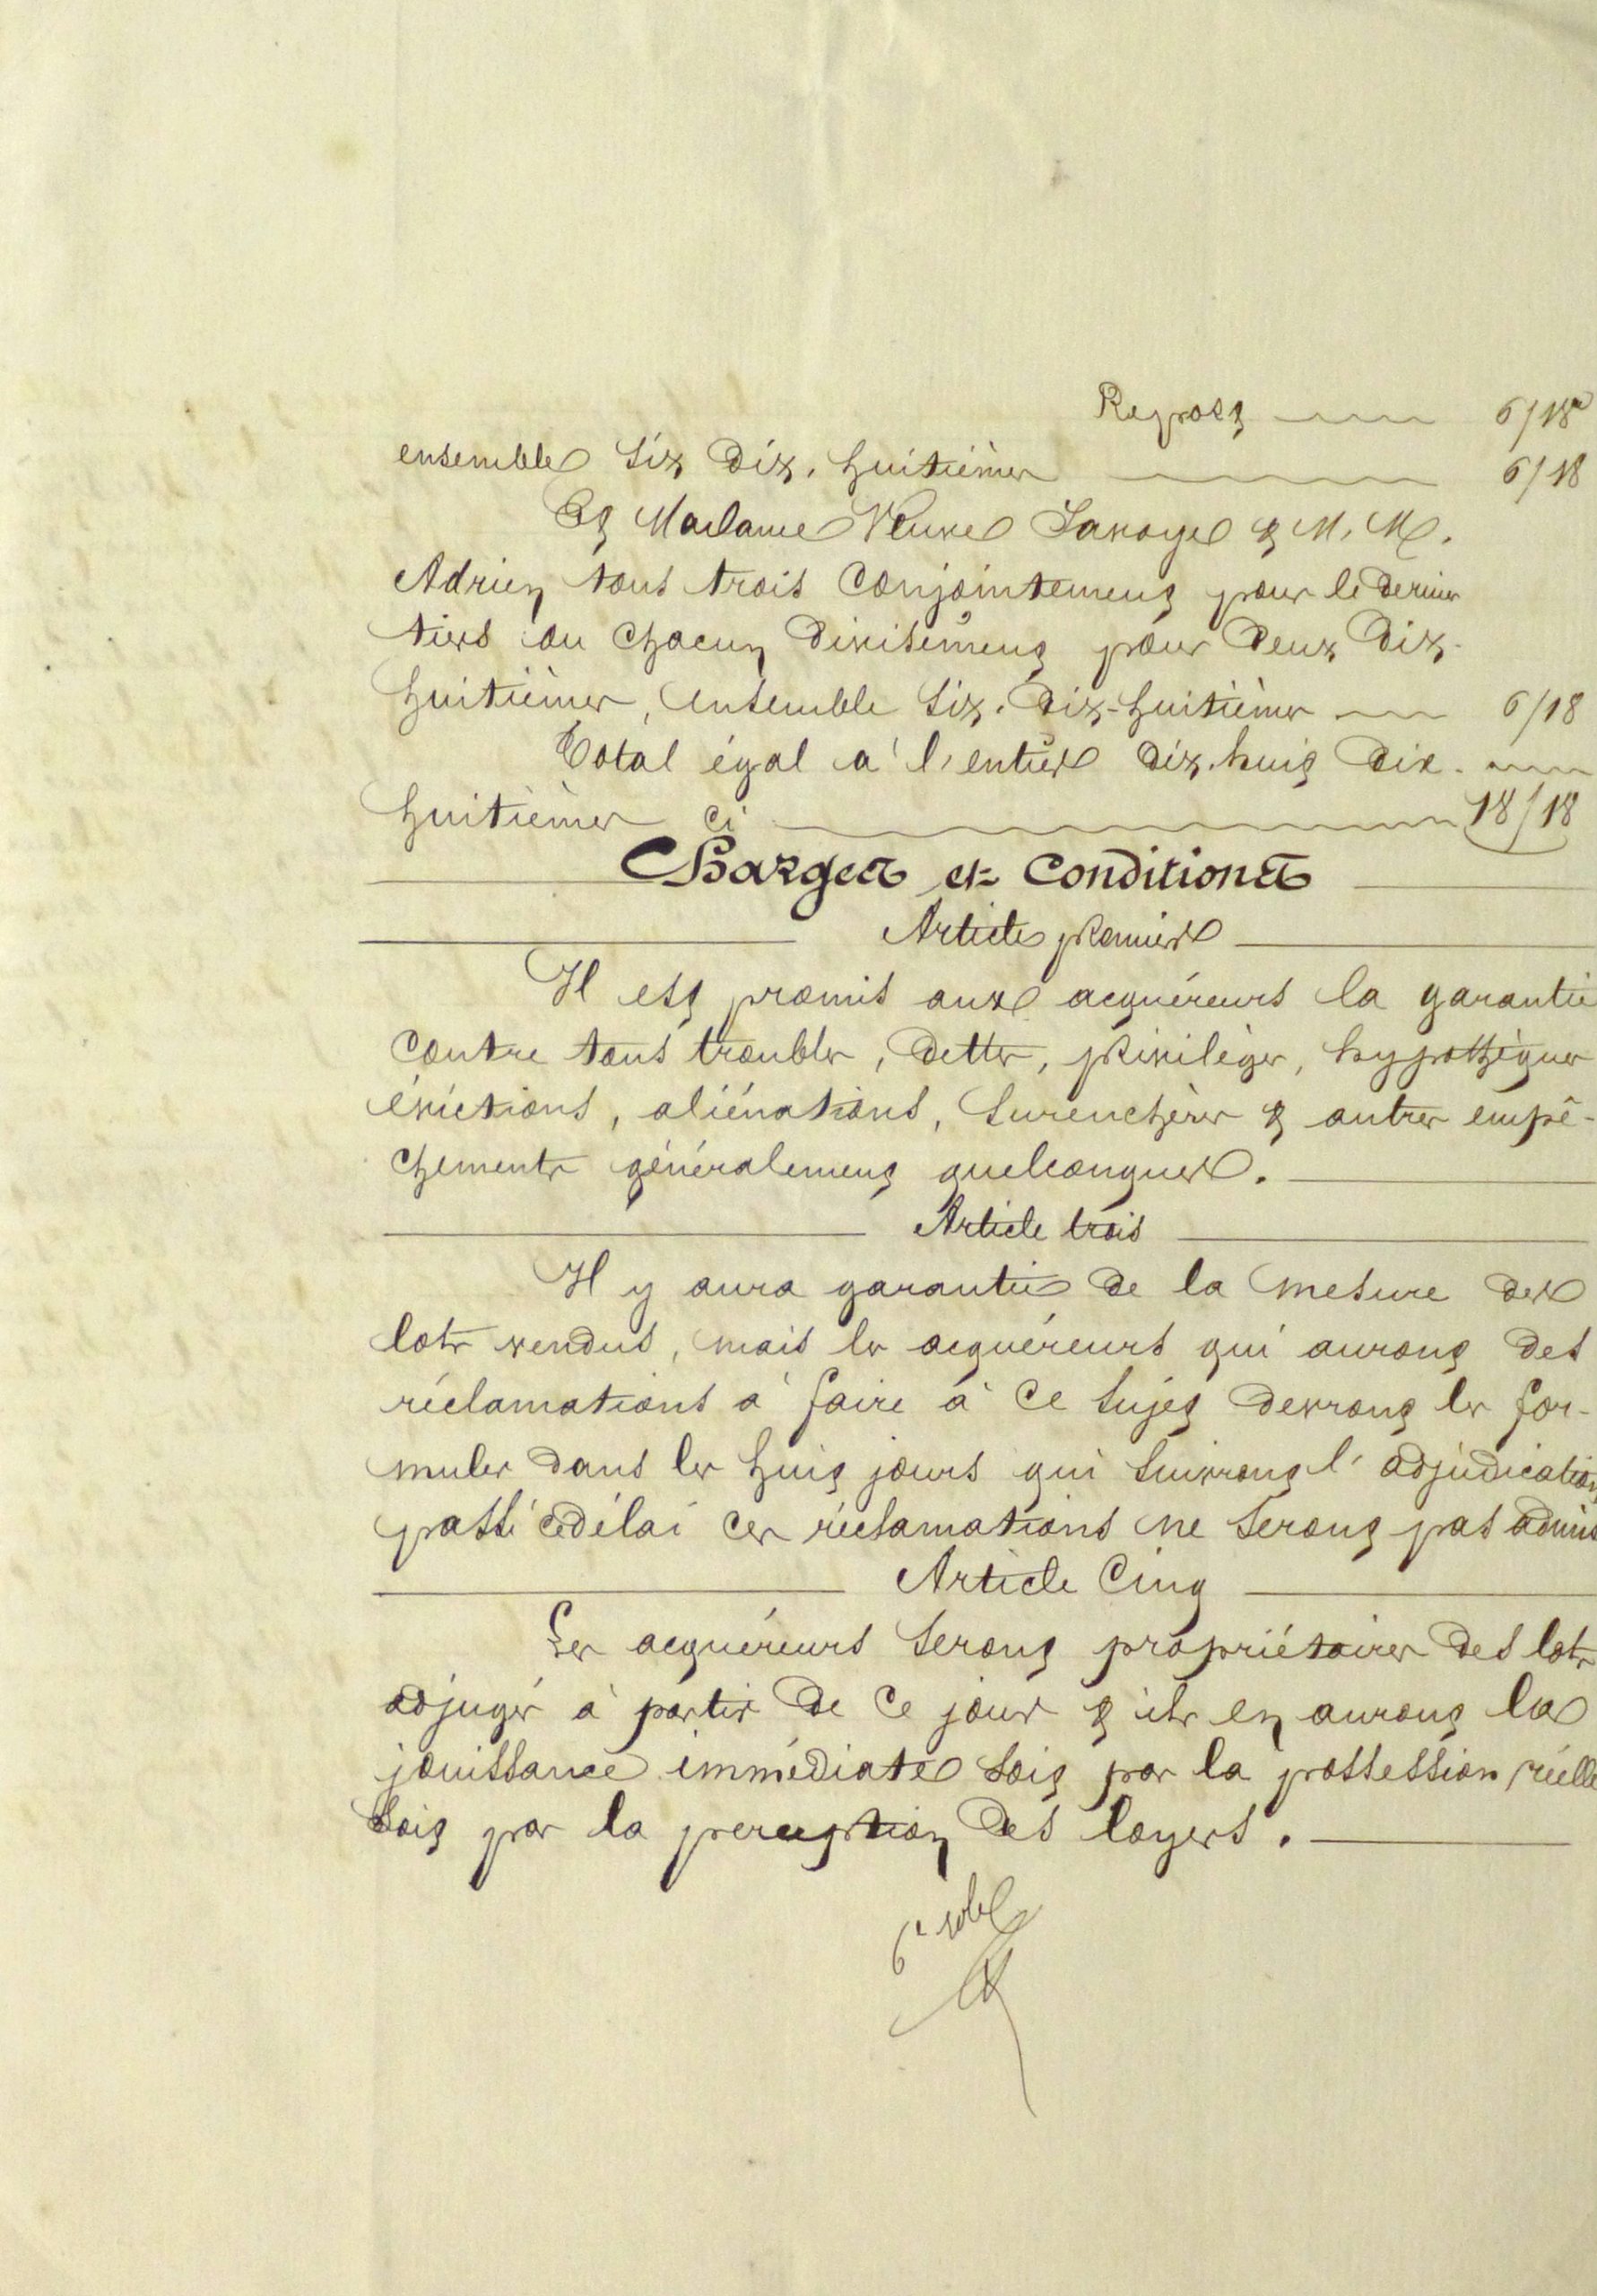 Report 6/18e
ensemble six dix-huitièmes 6/18
Et Madame Veuve Lavoye & M. M.
Adrien tous trois conjointement pour le dernier
tiers ou chacun divisément pour deux dix-
huitièmes, ensemble six-dix-huitièmes 6/18
Total égal à l'entier dix-huit dix-
huitièmes ci 18/18
Charges et Conditions
Article premier
Il est promis aux acquéreurs la garantie
contre tous troubles, dettes, privilèges, hypothèques
évictions, aliénations, surenchères & autres empê-
chements généralement quelconques.
Article trois
Il y aura garantie de la mesure des
lots vendus, mais les acquéreurs qui auront des
réclamations à faire à ce sujet devront les for-
muler dans les huit jours qui suivront l'adjudication
passé ce délai ces réclamations ne seront pas admis
Article Cinq
Les acquéreurs seront propriétaires des lots
adjugés à partir de ce jour & ils en auront la
jouissance immédiate soit par la possession réelle
soit par la perception des loyers.
6e rôle